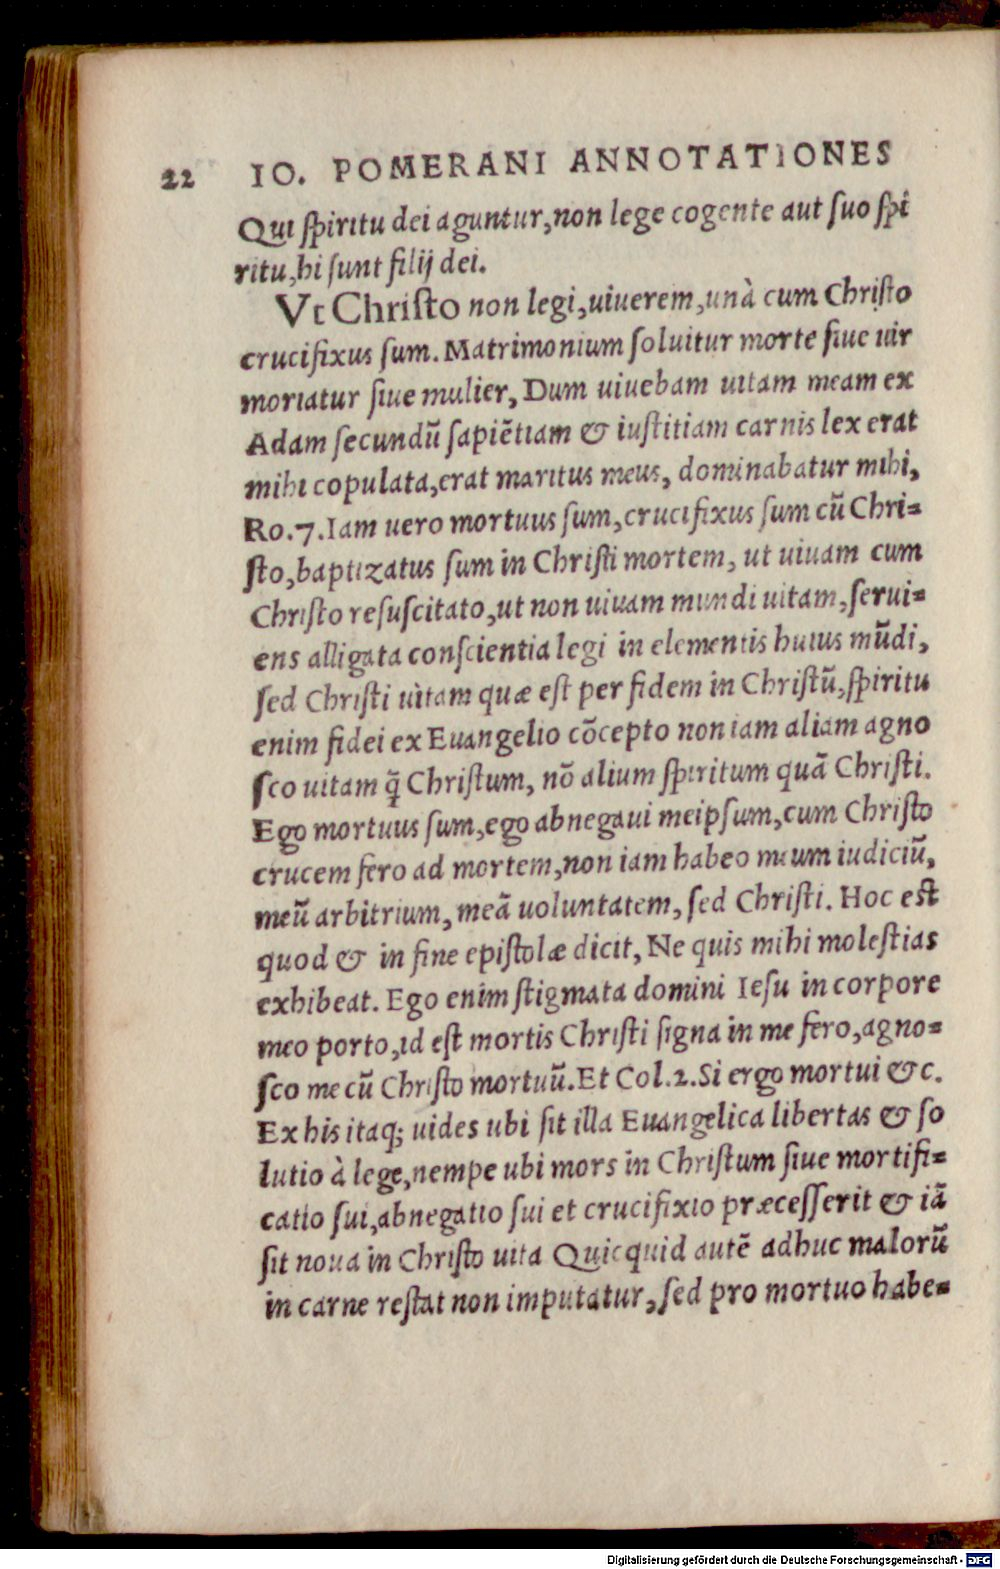 22 IO. POMERANI ANNOTATIONES
Qui ſpiritu dei aguntur,non lege cogente aut ſuo ſpi
ritu,hi ſunt filij dei.
Vt Chriſto non legi,uiuerem,unà cum Chriſto
crucifixus ſum. Matrimonium ſoluitur morte ſiue uir
moriatur ſiue mulier, Dum uiuebam uitam meam ex
Adam ſecundū ſapiētiam & iuſtitiam carnis lex erat
mihi copulata,erat maritus meus, dominabatur mihi,
Ro.7.Iam uero mortuus ſum,crucifixus ſum cū Chri⸗
ſto,baptizatus ſum in Chriſti mortem, ut uiuam cum
Chriſto reſuſcitato,ut non uiuam mundi uitam,ſerui⸗
ens alligata conſcientia legi in elementis huius mūdi,
ſed Chriſti uitam quæ eſt per fidem in Chriſtū,ſpiritu
enim fidei ex Euangelio cōcepto non iam aliam agno
ſco uitam q̄ Chriſtum, nō alium ſpiritum quā Chriſti.
Ego mortuus ſum,ego abnegaui meipſum,cum Chriſto
crucem fero ad mortem,non iam habeo meum iudiciū,
meū arbitrium, meā uoluntatem, ſed Chriſti. Hoc eſt
quod & in fine epiſtolæ dicit, Ne quis mihi moleſtias
exhibeat. Ego enim ſtigmata domini Ieſu in corpore
meo porto,id eſt mortis Chriſti ſigna in me fero,agno⸗
ſco me cū Chriſto mortuū.Et Col.2.Si ergo mortui &c.
Ex his itaq; uides ubi ſit illa Euangelica libertas & ſo
lutio à lege,nempe ubi mors in Chriſtum ſiue mortifi⸗
catio ſui,abnegatio ſui et crucifixio præceſſerit & iā
ſit noua in Chriſto uita Quicquid autē adhuc malorū
in carne reſtat non imputatur,ſed pro mortuo habe⸗
Digitalisierung gefördert durch die Deutsche Forschungsgemeinschaft - DFG